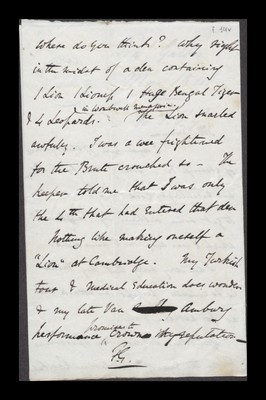 where do you think? Why right
in the midst of a den containing
1 Lion 1 Lioness 1 Huge Bengal Tiger
& 4 Leopards. The Lion snarled
awfully. I was a wee frightened
for the Brute crouched so – The
keeper told me that I was only
the 4th that had Entered that den
Nothing like making oneself a
"Lion" at Cambridge. My Turkish
tour & medical Education does wonders
& my late Van Amburg
performance promises to Crown my reputation –
FG.